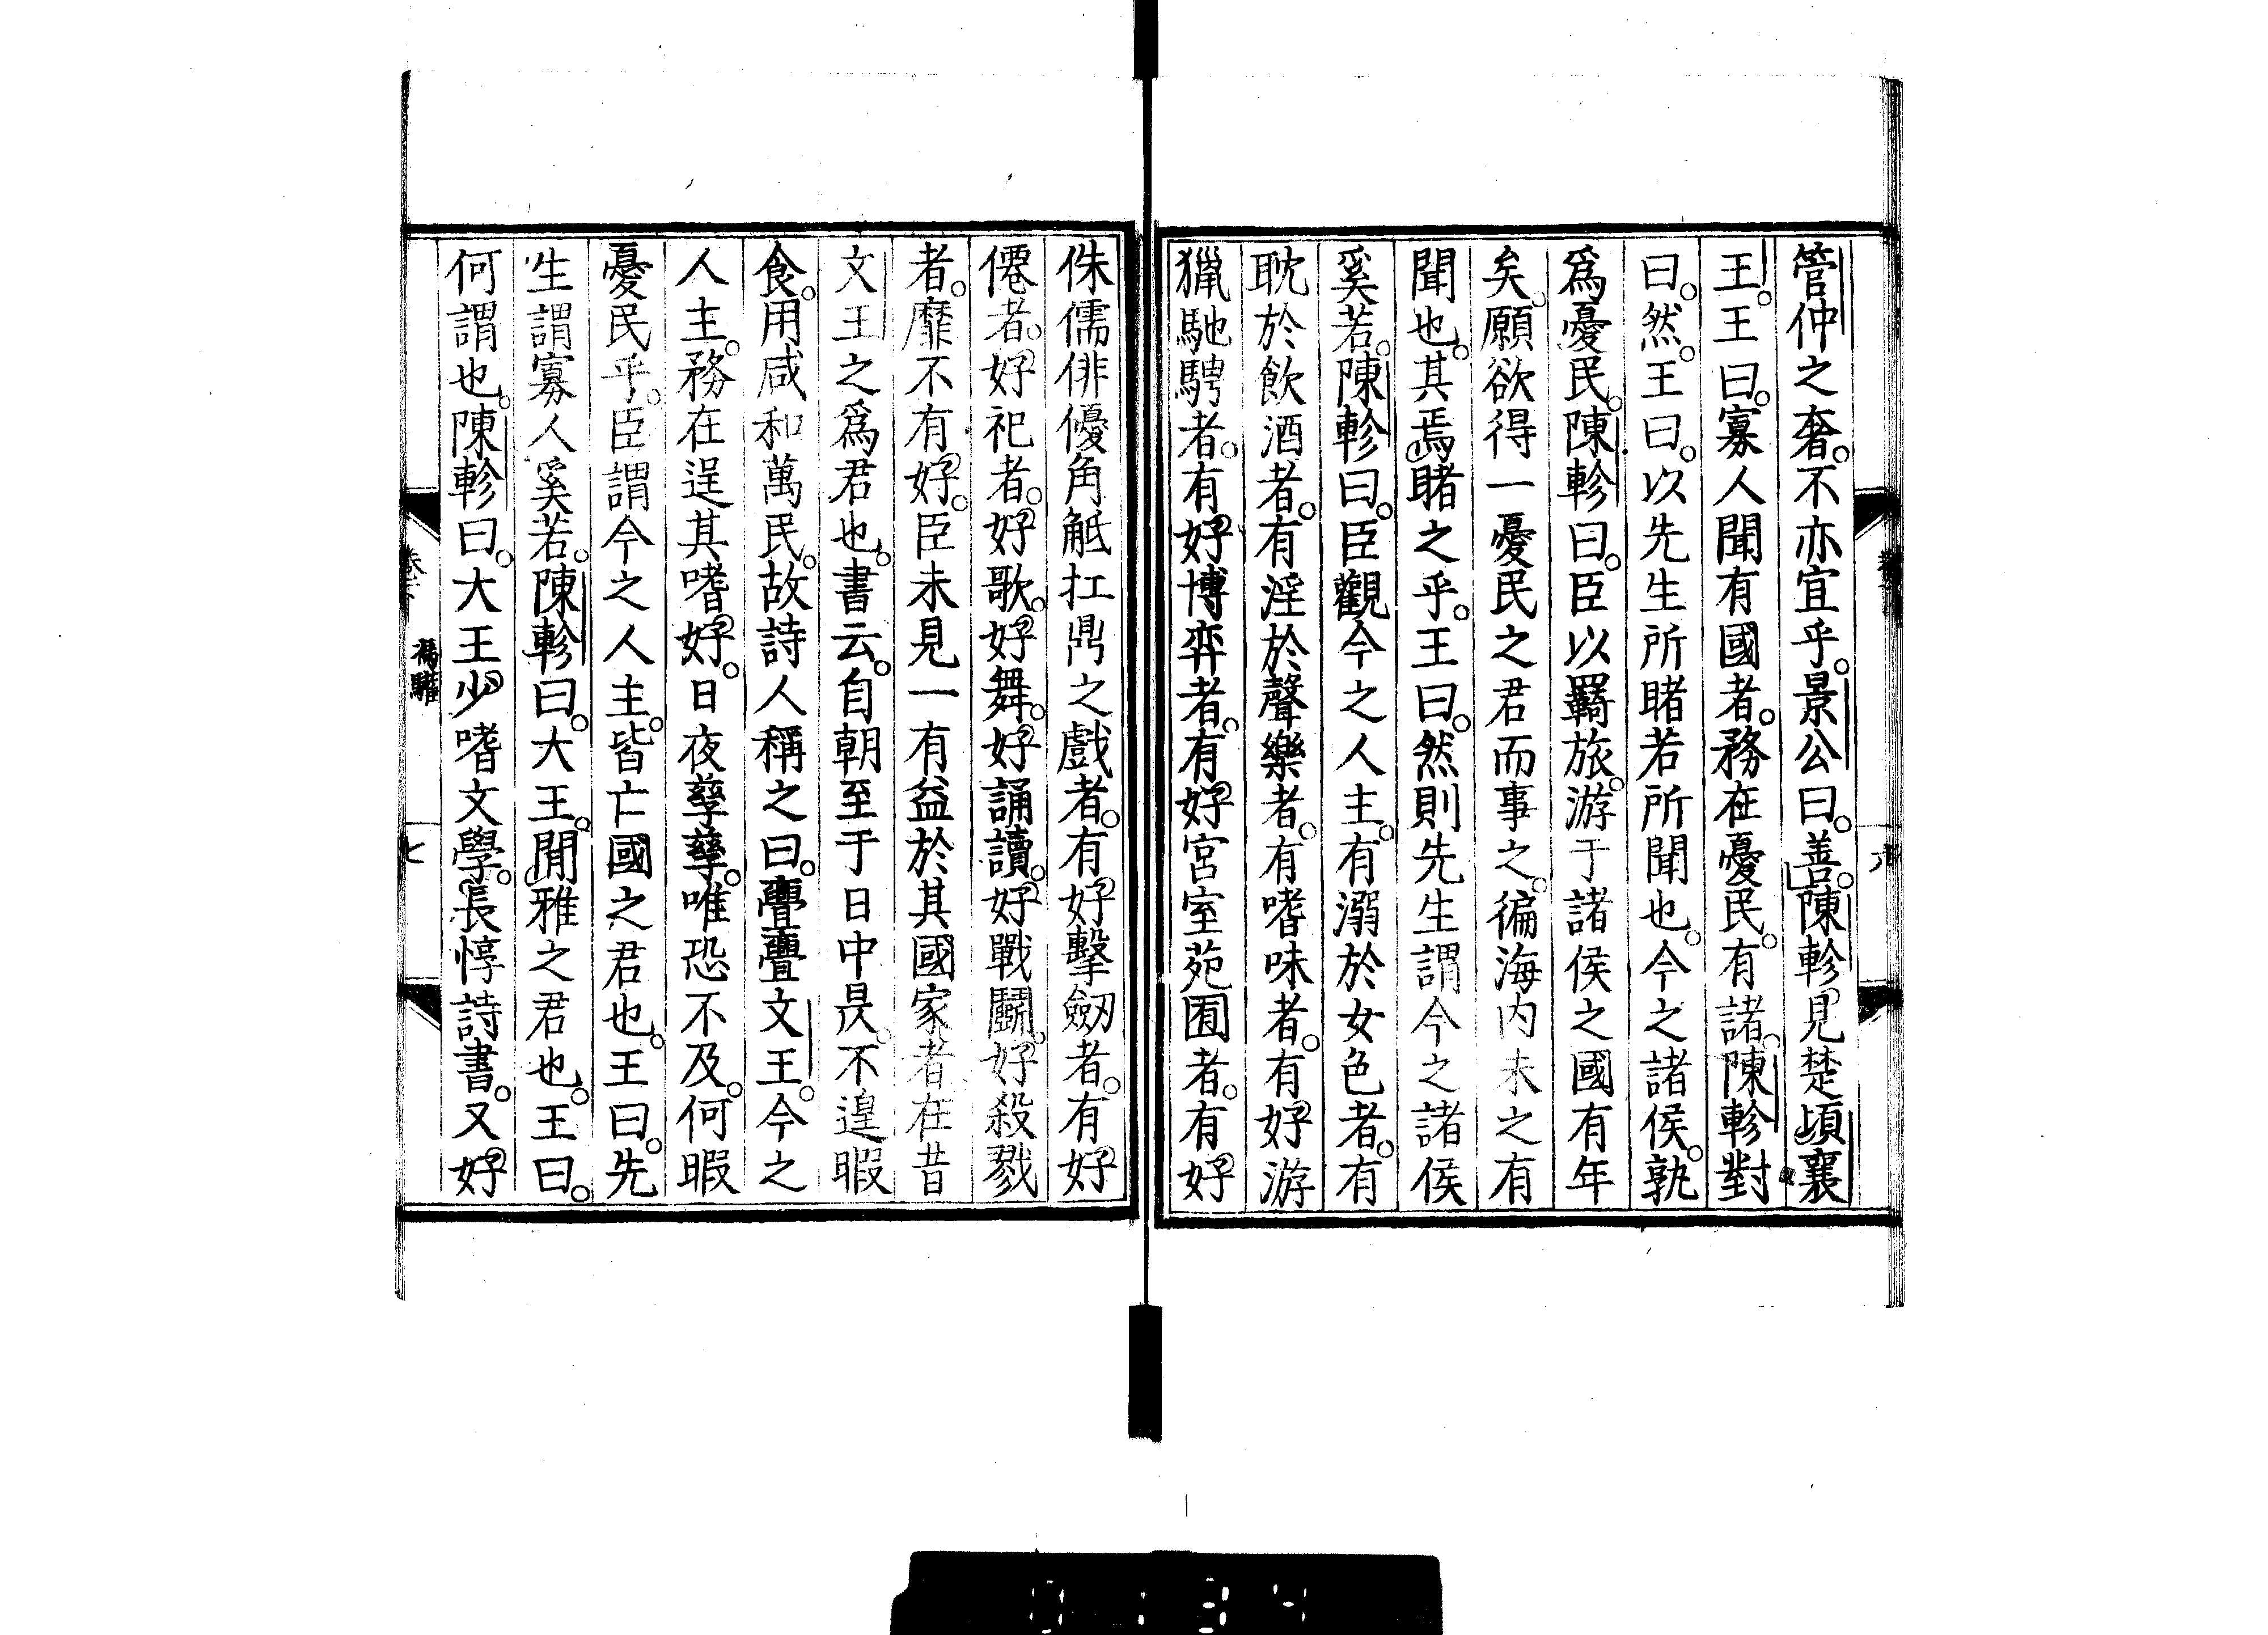 管仲之奢。不亦宜乎。景公曰。善。陳軫見楚頃襄
王。王曰。寡人聞有國者。務在憂民。有諸。陳軫對
曰。然。王曰。以先生所睹若所聞也。今之諸侯。孰
爲憂民。陳軫曰。臣以羇旅。游于諸侯之國有年
矣。願欲得一憂民之君而事之。徧海內未之有
聞也。其焉睹之乎。王曰。然則先生謂今之諸侯
奚若。陳軫曰。臣觀今之人主。有溺於女色者。有
耽於飲酒者。有淫於聲樂者。有嗜味者。有好游
獵馳騁者。有好博弈者。有好宮室苑囿者。有好
侏儒俳優角觝扛鼎之戲者。有好擊劒者。有好
僊者。好祀者。好歌。好舞。好誦讀。好戰鬭。好殺戮
者。靡不有好。臣未見一有益於其國家者。在昔
文王之爲君也。書云。自朝至于日中昃。不遑暇
食。用咸和萬民。故詩人稱之曰。亹亹文王。今之
人主。務在逞其嗜好。日夜孳孳。唯恐不及。何暇
憂民乎。臣謂今之人主。皆亡國之君也。王曰。先
生謂寡人奚若。陳軫曰。大王。閒雅之君也。王曰。
何謂也。陳軫曰。大王少嗜文學。長惇詩書。又好
七